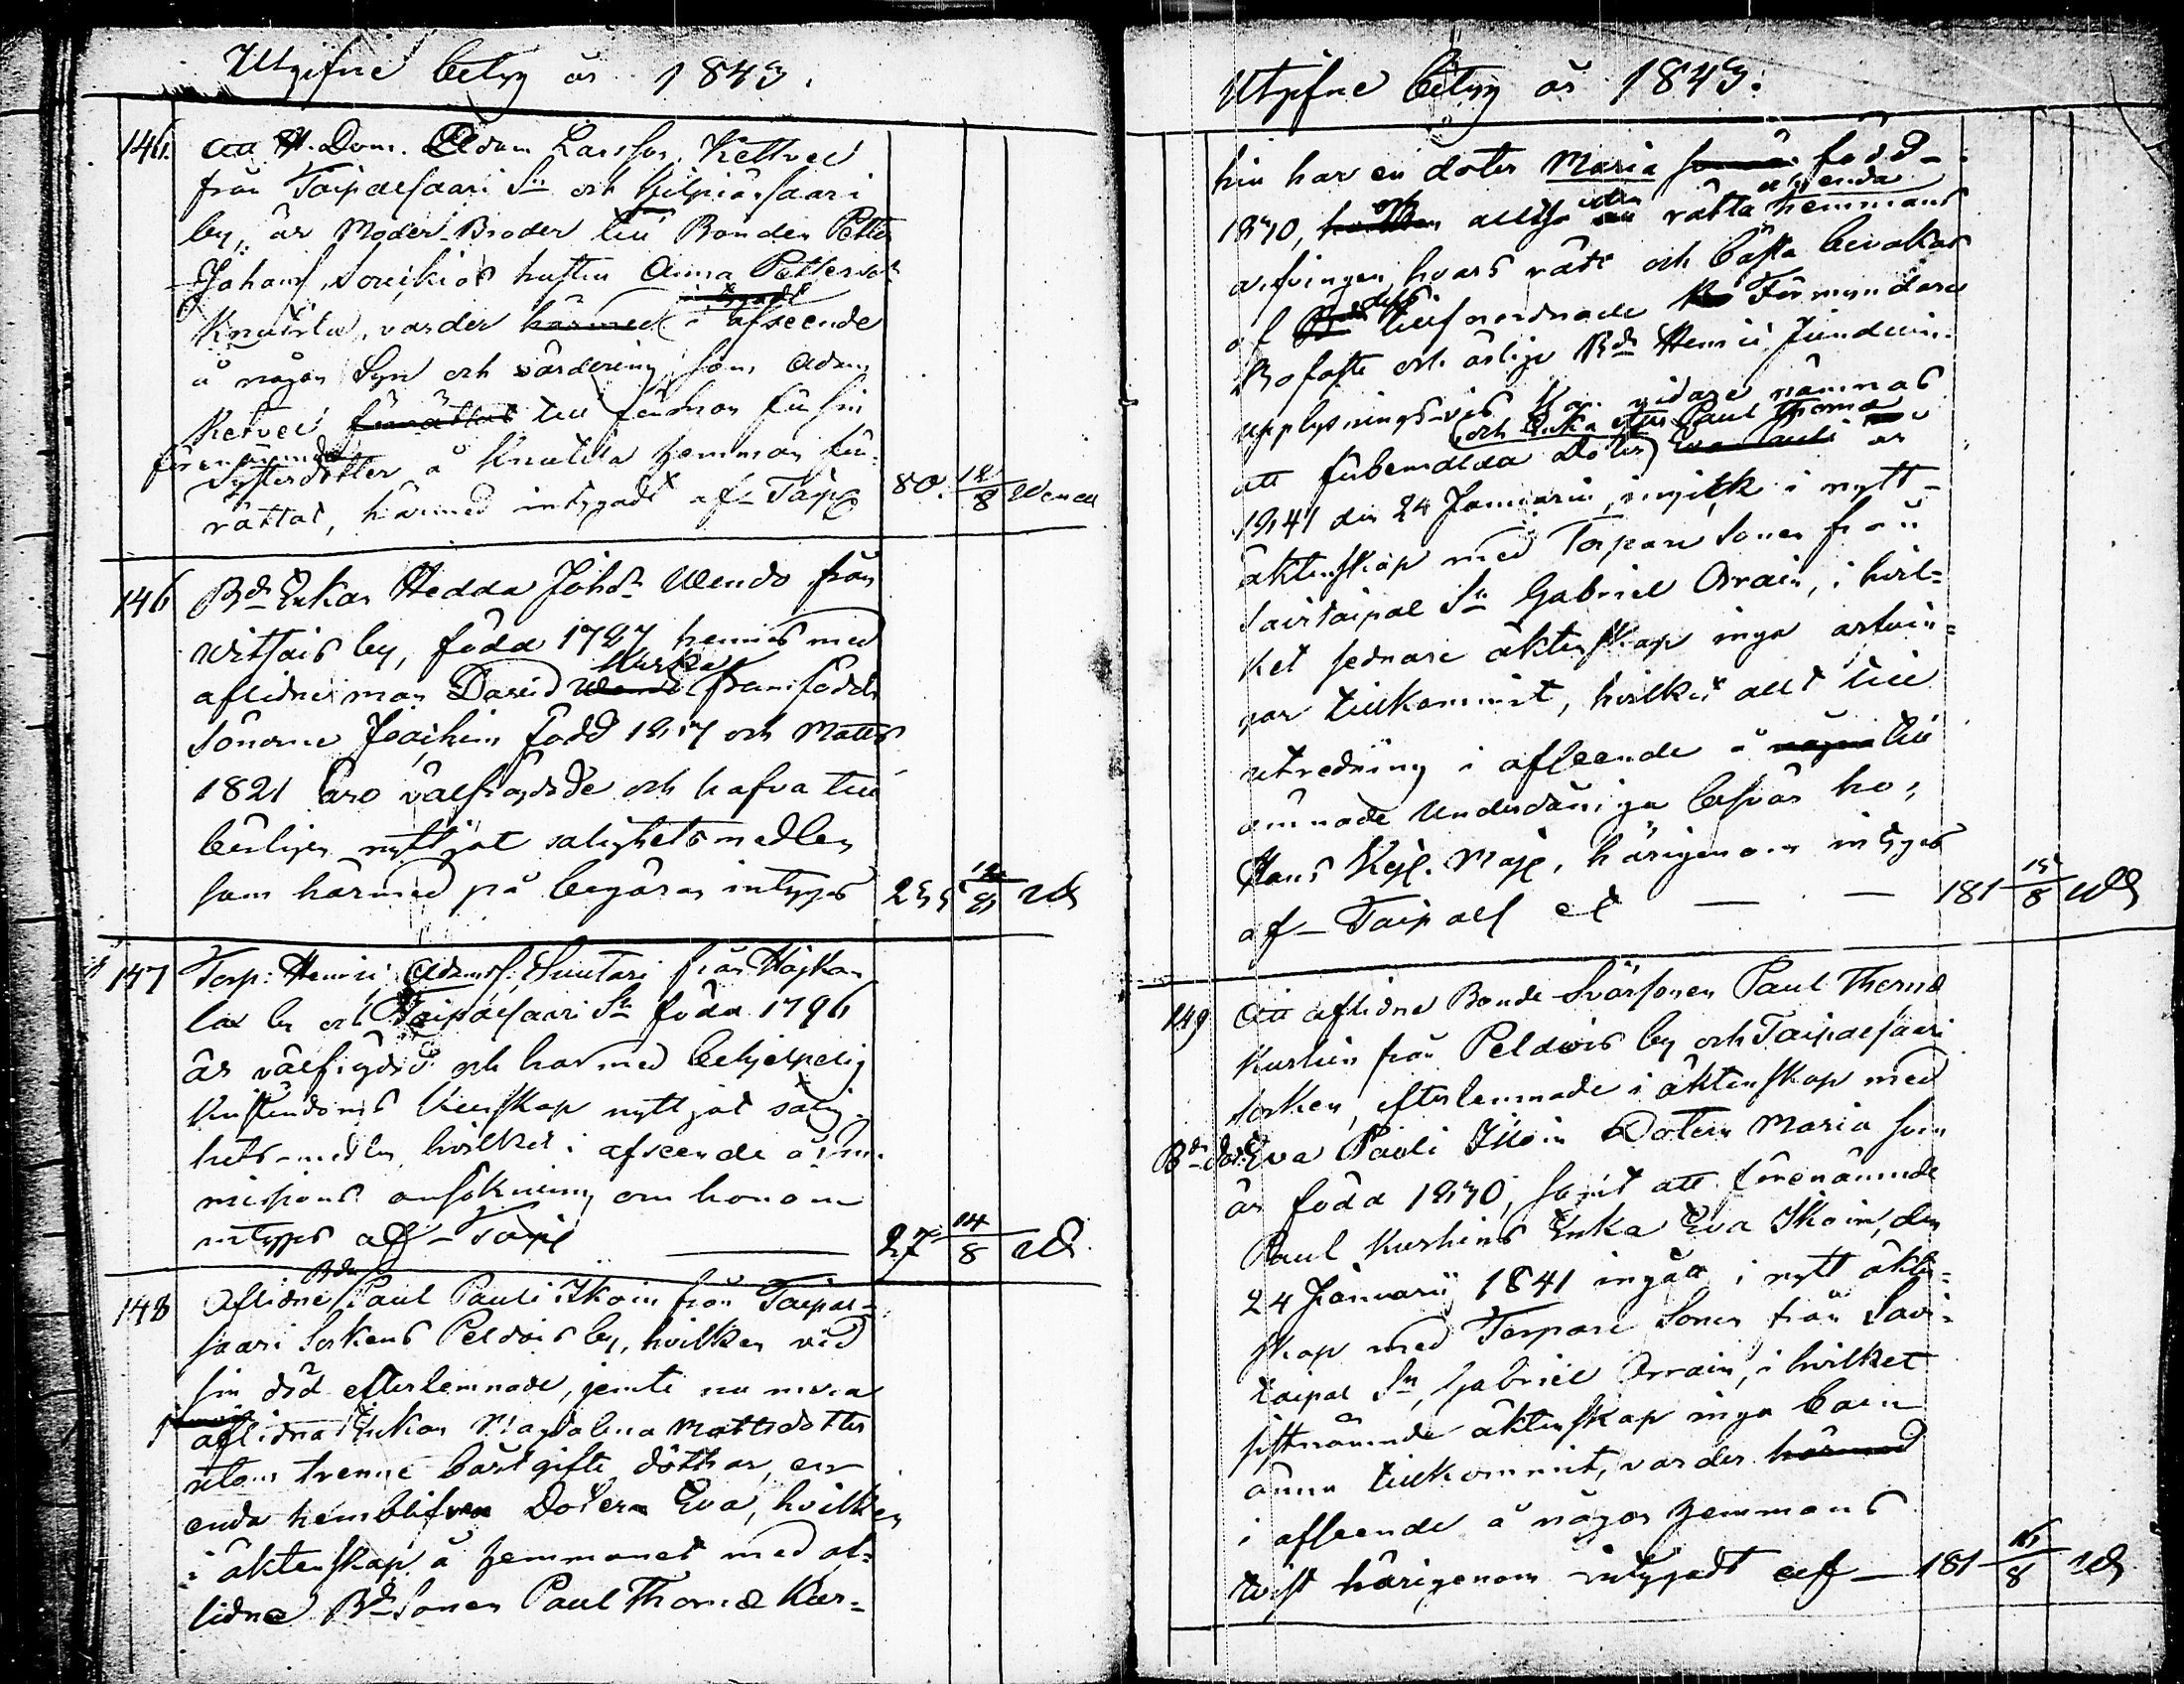 Utgifne betyg år 1843.
146. att H. Dom. Adam Larsson Kettvei
från Taipalsaari Sn och Kilpiänsaari
by, är Moder-Broder till Bonden Petter
Johans. hustru Anna Pettersdr
Knutila, varder härmed i afseende
intygadt
å någon Syn och värdering, som Adam
Ketvei förrättat till förmon för sin
förenämnde
Systerdotter å Knutila hemman för-
rättat, härmed intygadt af Taip 80. 12/8
146 Bde Enkan Hedda Johsdr från
by, född 1787 hennes med
aflidne man David framfödde
Sönerne Joachim född 1817 och Matts
1821 äro välfrejdade och hafva till-
börligen nyttjat salighetsmedlen
som härmed på begäran intygas
147 Torp: Henric Adamss. Suutari från
lax by och Taipalsaari Sn född 1796
är välfrejdad och har med behjelpelig
kristendoms kunskap nyttjat salig-
hets-medlen, hvilket i afseende å
missions ansökning om honom
intygas af Taipl — 27 14/8
148 Aflidne Bden Paul Pauli Ikoin från Taipal-
saari Sockens Peldois by, hvilken vid
sin död efterlemnade, jemte nu mera
aflidna Enkan Magdalena Mattsdotter
utom trenne bortgifte döttrar, en
enda hemblifven Doter Eva, hvilken
i äktenskap å hemmanet med af-
lidne Bde Sonen Paul Thomæ Kur-
Utgifne betyg år 1843.
hin har en doter Maria född
1830, och alltså rätta hemmans
arfvingen, hvars rätt och bästa bevakas
af dess tillförordnade Förmyndare
Bofaste och ärlige Bde Henric
upplysningsvis kan vidare nämnas
och Enka efter Paul Thomæ
att förbemelda Doter Eva Pauli år
1841 den 24 Januarii, ingick i nytt
äktenskap med Torpare Sonen från
Savitaipal Sn Gabriel Orrain, i hvil-
ket sednare äktenskap inga arfvin-
gar tillkommit, hvilket allt till
utredning i afseende å några till
ämnade Underdåniga besvär hos
Hans Kejs. Maj:, härigenom intygas
af — Taipals — — 181 15/8
149 Att aflidne Bonde Svärsonen Paul Thomæ
Kurhin från Peldois by och Taipalsaari
Socken, efterlemnade i äktenskap med
Bde dotr Eva Pauli Ikoin Dotern Maria som
är född 1830, samt att förenämnde
Paul Kurhins Enka Eva Ikoin, den
24 Januarii 1841 ingått i nytt äkten-
skap med Torpare Sonen från Savi-
taipal Sn, Gabriel Orrain, i hvilket
sistnämnde äktenskap inga barn
ännu tillkommit, varder härmed
i afseende å någon hemmans
tvist härigenom intygadt af — 181 16/8